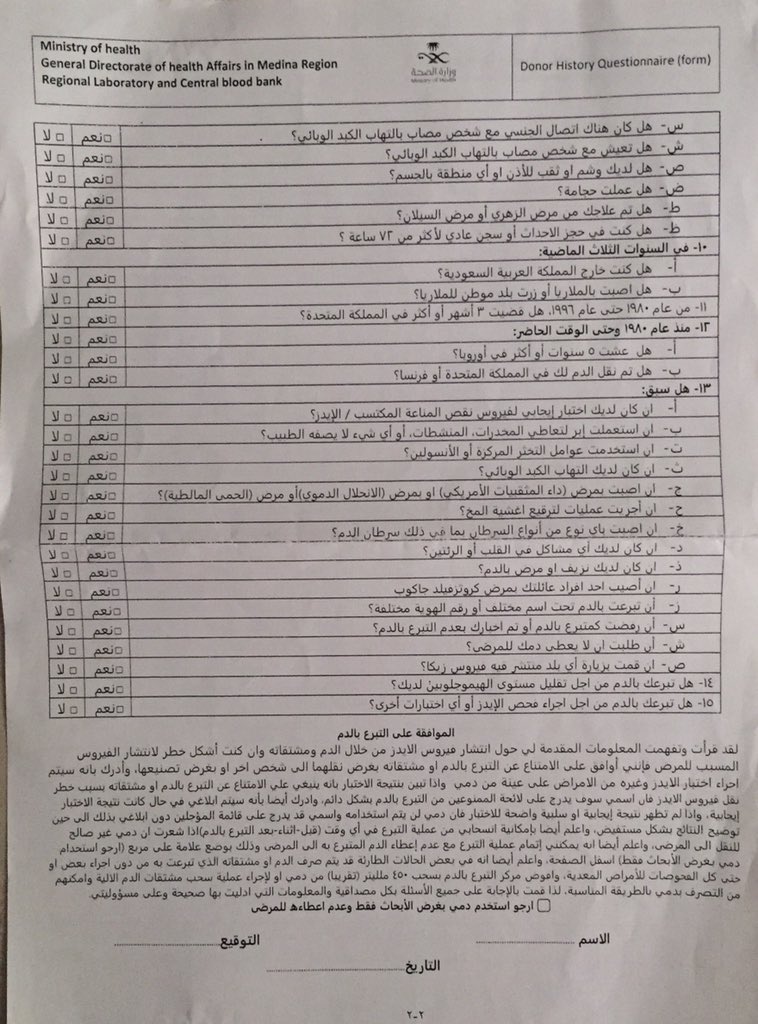 Ministry of health
General Directorate of health Affairs in Medina Region
Regional Laboratory and Central blood bank
وزارة الصحة
Ministry of Health
Donor History Questionnaire (form)
س- هل كان هناك اتصال الجنسي مع شخص مصاب بالتهاب الكبد الوبائي؟ □نعم □ لا
ش- هل تعيش مع شخص مصاب بالتهاب الكبد الوبائي؟ □نعم □ لا
ص- هل لديك وشم او ثقب للأذن او أي منطقة بالجسم؟ □نعم □ لا
ض- هل عملت حجامة؟ □نعم □ لا
ط- هل تم علاجك من مرض الزهري أو مرض السيلان؟ □نعم □ لا
ظ- هل كنت في حجز الاحداث أو سجن عادي لأكثر من ٧٢ ساعة ؟ □نعم □ لا
١٠- في السنوات الثلاث الماضية:
أ- هل كنت خارج المملكة العربية السعودية؟ □نعم □ لا
ب- هل اصبت بالملاريا أو زرت بلد موطن للملاريا؟ □نعم □ لا
١١- من عام ١٩٨٠ حتى عام ١٩٩٦، هل قضيت ٣ أشهر أو أكثر في المملكة المتحدة؟ □نعم □ لا
١٢- منذ عام ١٩٨٠ وحتى الوقت الحاضر:
أ- هل عشت ٥ سنوات أو أكثر في أوروبا؟ □نعم □ لا
ب- هل تم نقل الدم لك في المملكة المتحدة أو فرنسا؟ □نعم □ لا
١٣- هل سبق:
أ- ان كان لديك اختبار إيجابي لفيروس نقص المناعة المكتسب / الإيدز؟ □نعم □ لا
ب- ان استعملت إبر لتعاطي المخدرات، المنشطات، أو أي شيء لا يصفه الطبيب؟ □نعم □ لا
ت- ان استخدمت عوامل التخثر المركزة أو الأنسولين؟ □نعم □ لا
ث- ان كان لديك التهاب الكبد الوبائي؟ □نعم □ لا
ج- ان اصبت بمرض (داء المثقبيات الأمريكي) او بمرض (الانحلال الدموي)أو مرض (الحمى المالطية)؟ □نعم □ لا
ح- ان أجريت عمليات لترقيع اغشية المخ؟ □نعم □ لا
خ- ان اصبت باي نوع من أنواع السرطان بما في ذلك سرطان الدم؟ □نعم □ لا
د- ان كان لديك أي مشاكل في القلب أو الرئتين؟ □نعم □ لا
ذ- ان كان لديك نزيف او مرض بالدم؟ □نعم □ لا
ر- ان أصيب احد افراد عائلتك بمرض كروتزفيلد جاكوب □نعم □ لا
ز- أن تبرعت بالدم تحت اسم مختلف أو رقم الهوية مختلفة؟ □نعم □ لا
س- أن رفضت كمتبرع بالدم أو تم اخبارك بعدم التبرع بالدم؟ □نعم □ لا
ش- أن طلبت ان لا يعطى دمك للمرضى؟ □نعم □ لا
ص- ان قمت بزيارة أي بلد منتشر فيه فيروس زيكا؟ □نعم □ لا
١٤- هل تبرعك بالدم من اجل تقليل مستوى الهيموجلوبين لديك؟ □نعم □ لا
١٥- هل تبرعك بالدم من اجل اجراء فحص الإيدز أو أي اختبارات أخرى؟ □نعم □ لا
الموافقة على التبرع بالدم
لقد قرأت وتفهمت المعلومات المقدمة لي حول انتشار فيروس الايدز من خلال الدم ومشتقاته وان كنت أشكل خطر لانتشار الفيروس
المسبب للمرض فإنني أوافق على الامتناع عن التبرع بالدم او مشتقاته بغرض نقلهما الى شخص اخر او بغرض تصنيعها، وأدرك بانه سيتم
اجراء اختبار الايدز وغيره من الامراض على عينة من دمي وإذا تبين بنتيجة الاختبار بانه ينبغي علي الامتناع عن التبرع بالدم او مشتقاته بسبب خطر
نقل فيروس الايدز فان اسمي سوف يدرج على لائحة الممنوعين من التبرع بالدم بشكل دائم، وادرك أيضا بأنه سيتم ابلاغي في حال كانت نتيجة الاختبار
إيجابية، واذا لم تظهر نتيجة إيجابية او سلبية واضحة للاختبار فان دمي لن يتم استخدامه واسمي قد يدرج على قائمة المؤجلين دون ابلاغي بذلك الى حين
توضيح النتائج بشكل مستفيض، واعلم أيضا بإمكانية انسحابي من عملية التبرع في أي وقت (قبل-اثناء-بعد التبرع بالدم)اذا شعرت ان دمي غير صالح
للنقل الى المرضى، واعلم أيضا انه يمكنني إتمام عملية التبرع مع عدم إعطاء الدم المتبرع به الى المرضى وذلك بوضع علامة على مربع (ارجو استخدام
دمي بغرض الأبحاث فقط) اسفل الصفحة، واعلم أيضا انه في بعض الحالات الطارئة قد يتم صرف الدم او مشتقاته الذي تبرعت به من دون اجراء بعض او
حتى كل الفحوصات للأمراض المعدية، وافوض مركز التبرع بالدم بسحب ٤٥٠ ملليتر (تقريبا) من دمي او لإجراء عملية سحب مشتقات الدم الالية وامكنهم
من التصرف بدمي بالطريقة المناسبة، لذا قمت بالإجابة على جميع الأسئلة بكل مصداقية والمعلومات التي ادليت بها صحيحة وعلى مسؤوليتي.
□ ارجو استخدم دمي بغرض الأبحاث فقط وعدم اعطاءه للمرضى
الاسم ........................ التوقيع........................
التاريخ........................
٢-٢